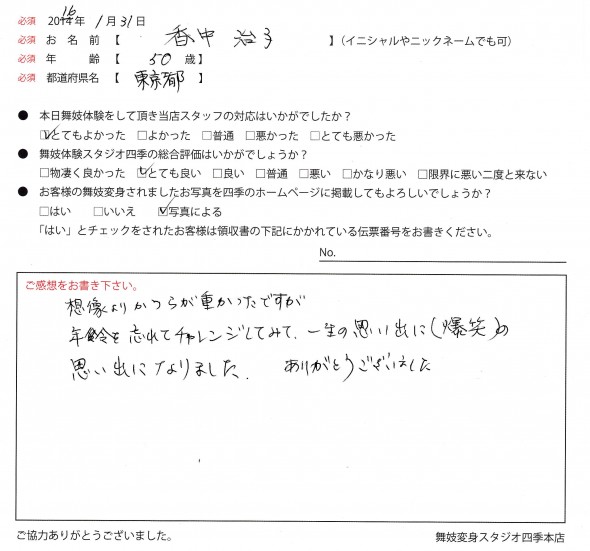 必須 2016年 1月31日
必須 お名前【 香中 治子 】(イニシャルやニックネームでも可)
必須 年齢【 50 歳】
必須 都道府県名【 東京都 】
● 本日舞妓体験をして頂き当店スタッフの対応はいかがでしたか?
☑とてもよかった □よかった □普通 □悪かった □とても悪かった
● 舞妓体験スタジオ四季の総合評価はいかがでしょうか?
□物凄く良かった ☑とても良い □良い □普通 □悪い □かなり悪い □限界に悪い二度と来ない
● お客様の舞妓変身されましたお写真を四季のホームページに掲載してもよろしいでしょうか?
□はい □いいえ ☑写真による
「はい」とチェックをされたお客様は領収書の下記にかかれている伝票番号をお書きください。
No.
ご感想をお書き下さい。
想像よりかつらが重かったですが
年齢を忘れてチャレンジしてみて、一生の思い出に(爆笑)の
思い出になりました. ありがとうございました
ご協力ありがとうございました。
舞妓変身スタジオ四季本店